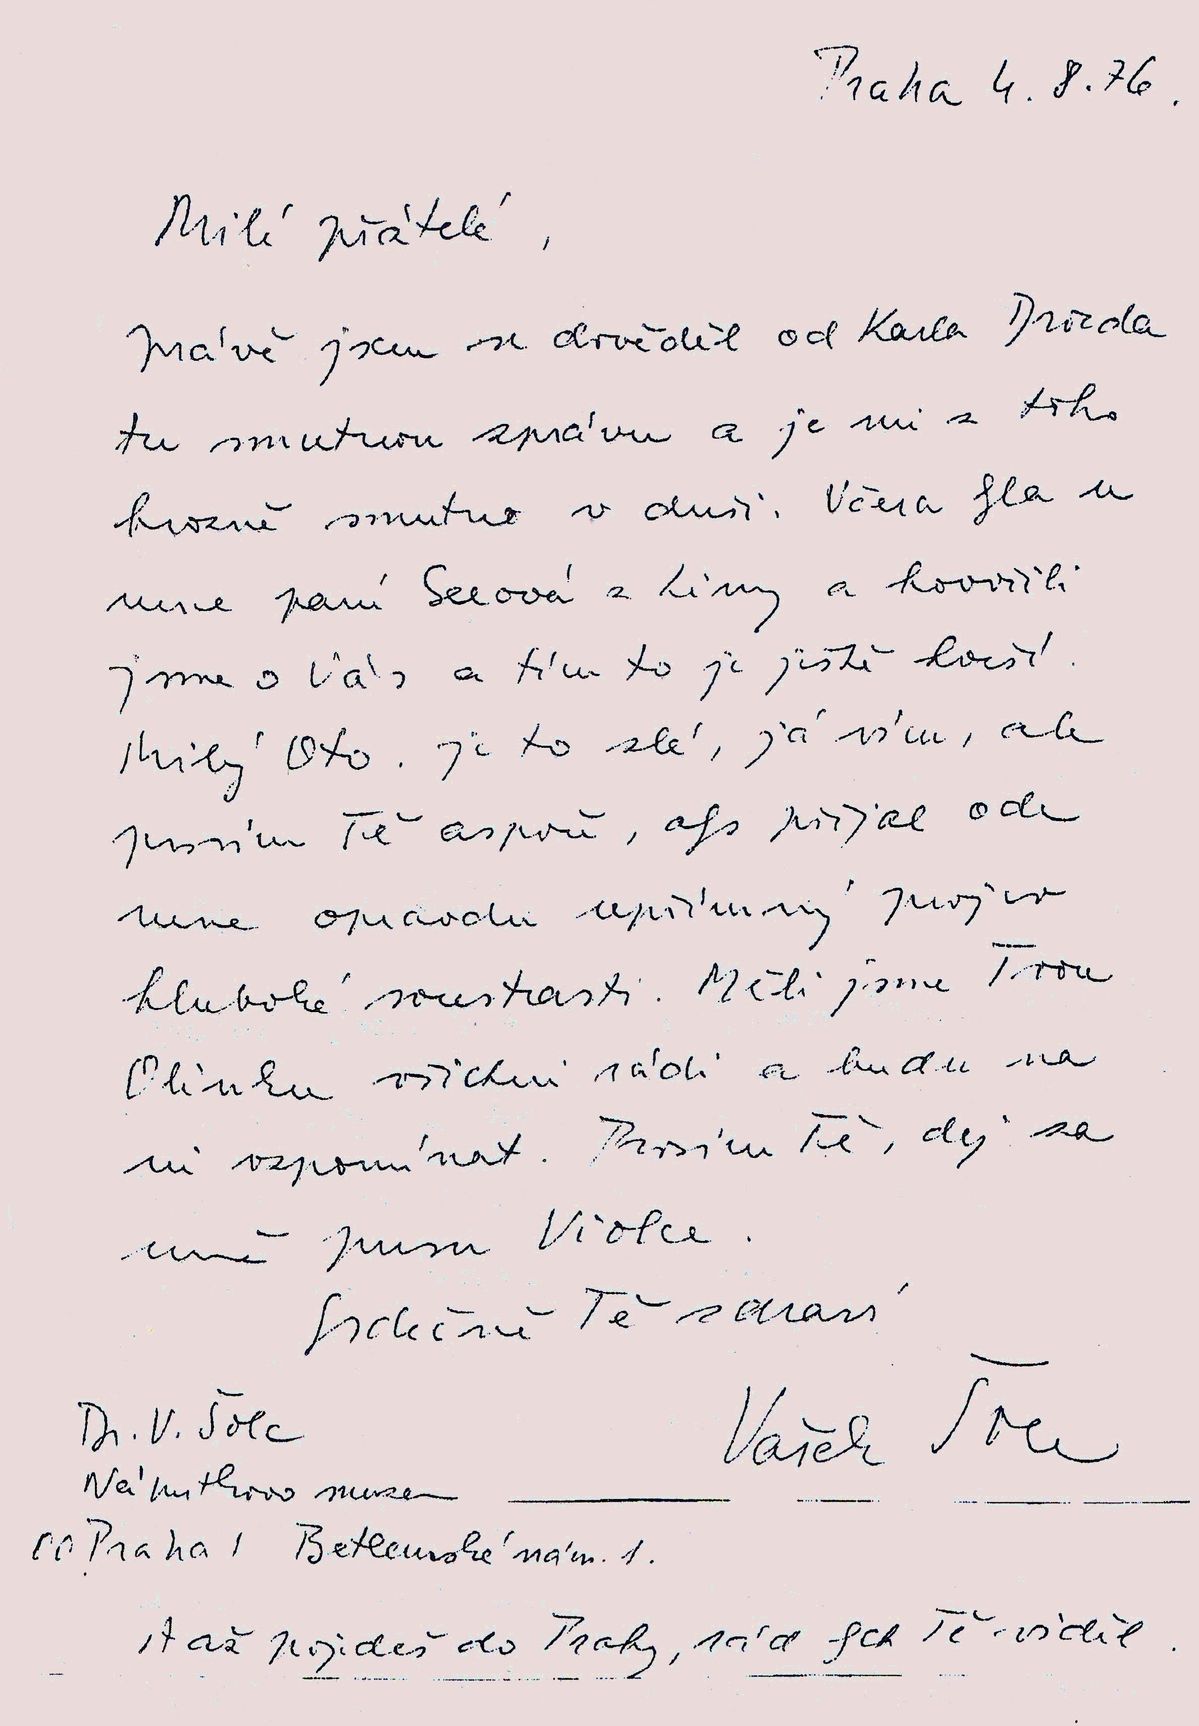 Praha 4. 8. 76.
Milí přátelé,
právě jsem se dověděl od Karla Drozda
tu smutnou zprávu a je mi z toho
hrozně smutno v duši. Včera byla u
mne paní Seeová z Limy a hovořili
jsme o Vás a tím to je ještě horší.
Milý Oto. je to zlé, já vím, ale
prosím Tě aspoň, abys přijal ode
mne opravdu upřímný projev
hluboké soustrasti. Měli jsme Tvou
Olinku všichni rádi a budu na
ni vzpomínat. Prosím Tě, dej za
mně pusu Violce.
Srdečně Tě zdraví
Vašek Šolc
Dr. V. Šolc
Náprstkovo muzeum
00 Praha 1 Betlemské nám. 1.
A až pojedeš do Prahy, rád bych Tě viděl.